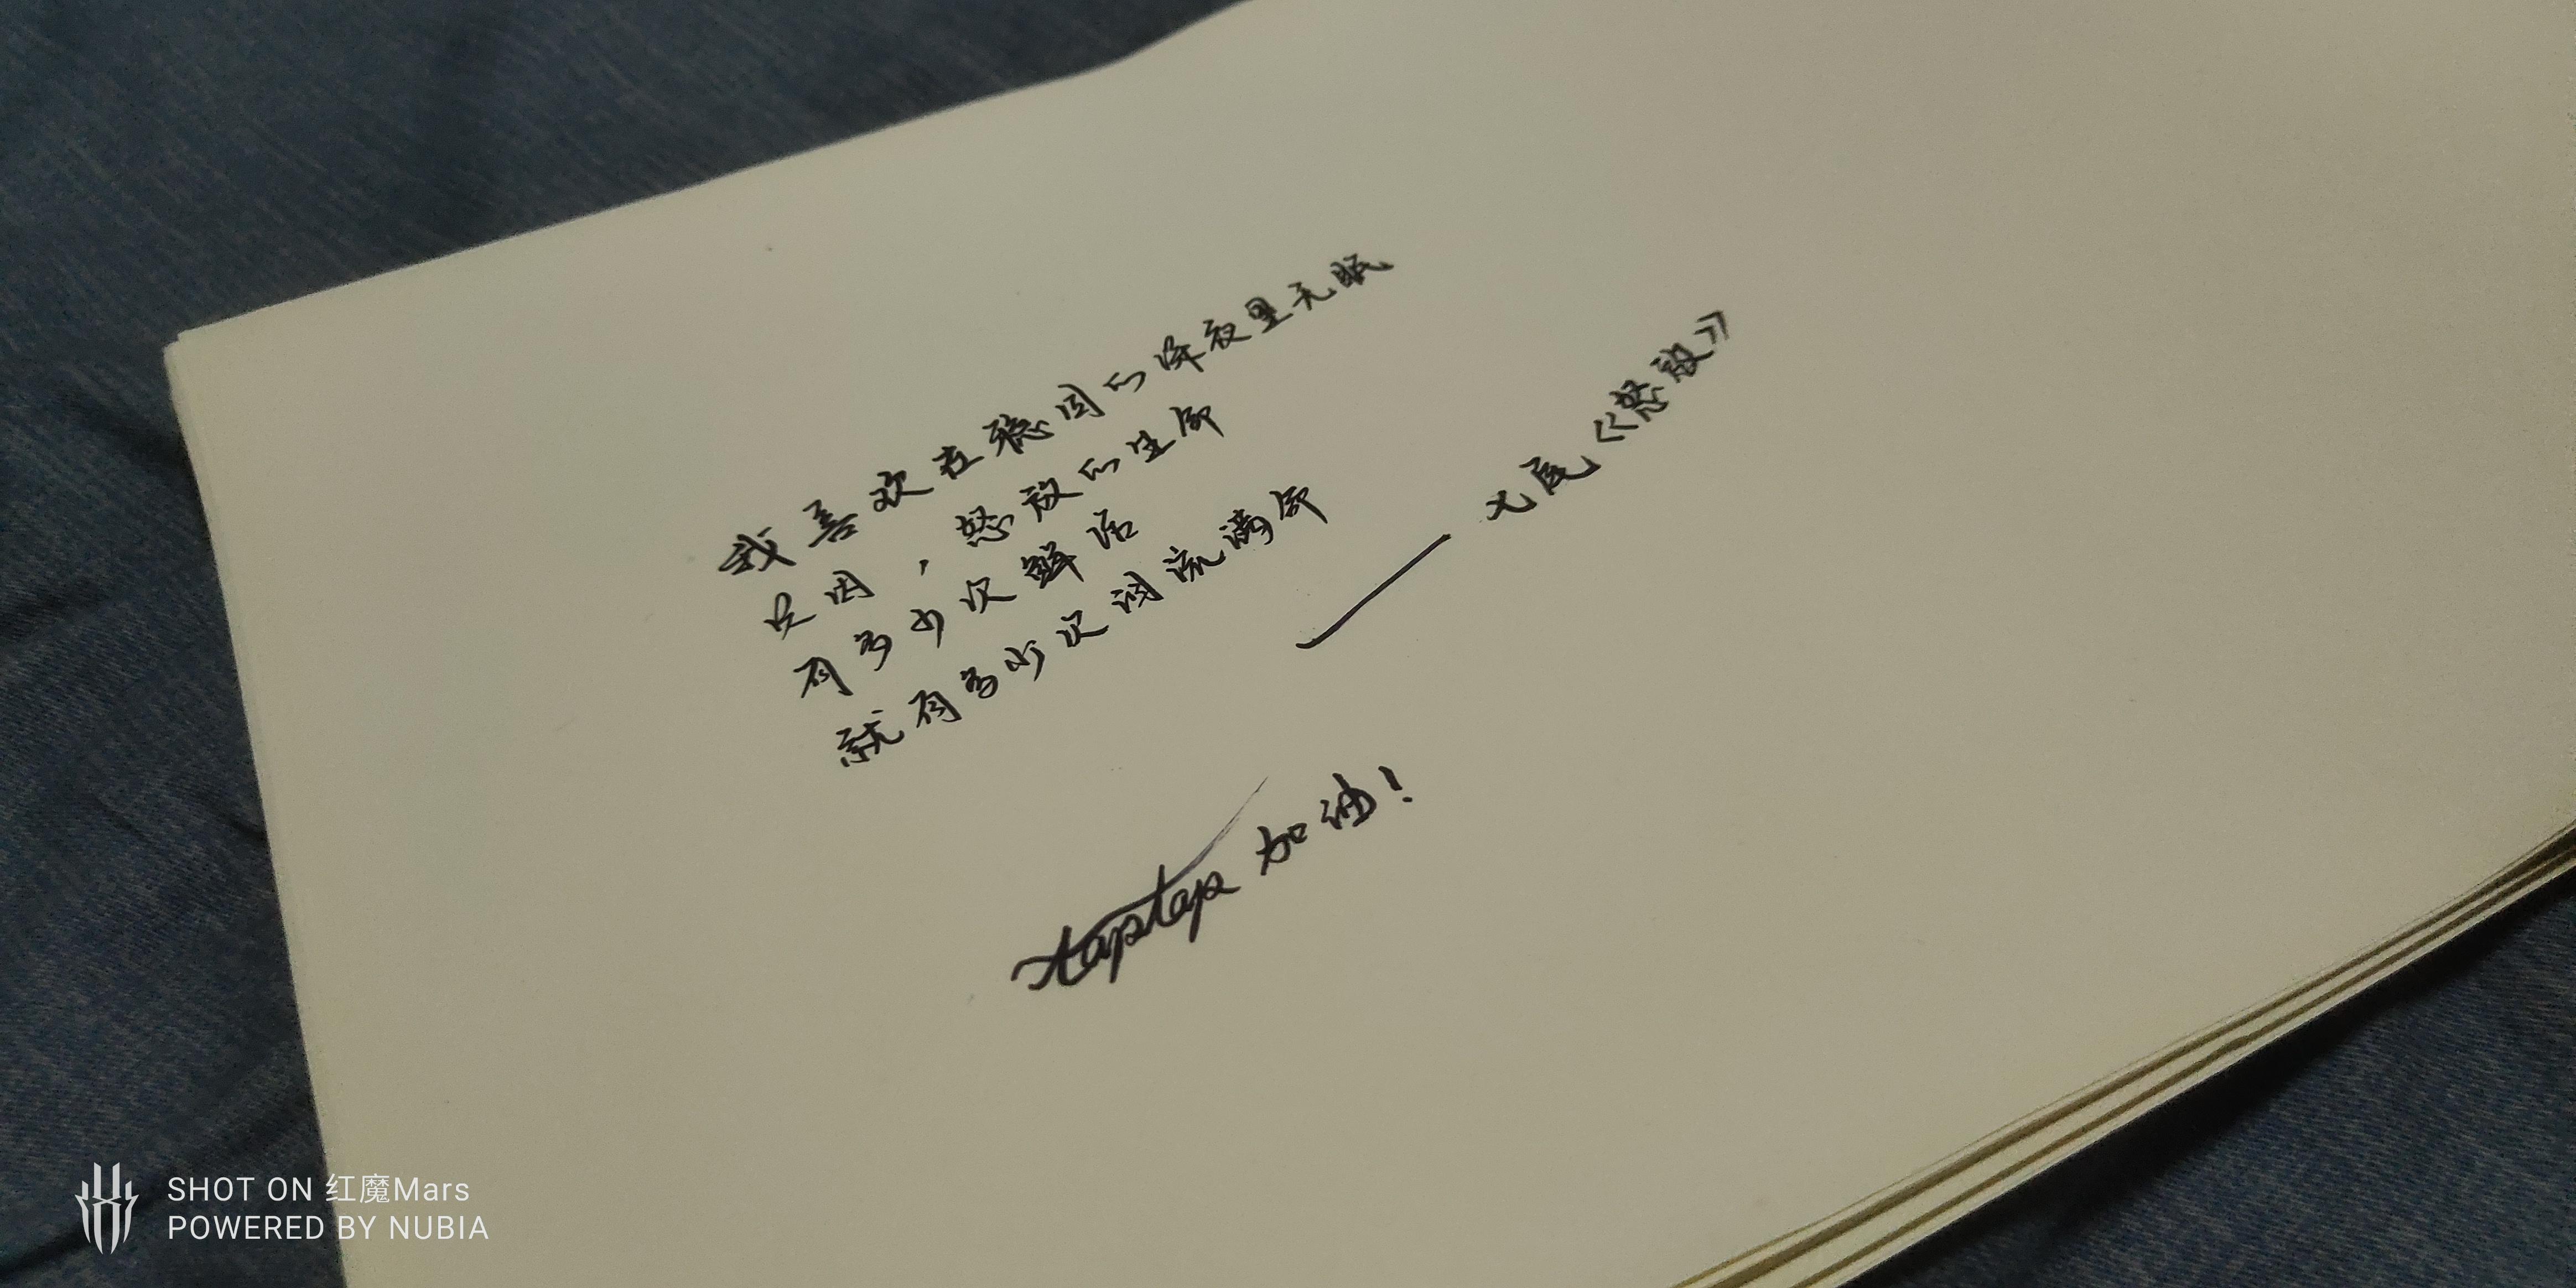 我喜欢在稳固的深夜里无眠
只因，怒放的生命
有多少次鲜活
就有多少次词流满命
——七尾《怒放》
taptap 加油！
SHOT ON 红魔Mars
POWERED BY NUBIA